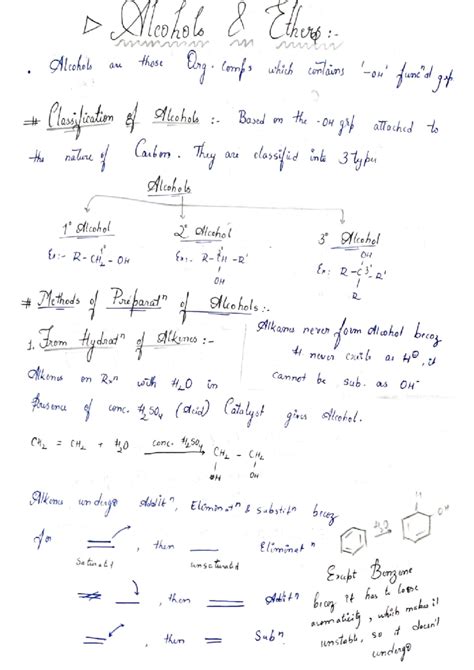 ▷ Alcohols & Ethers :-
• Alcohols are those Org. comps which contains '-OH' func'nal grp
# Classification of Alcohols :- Based on the -OH grp attached to
the nature of Carbon. They are classified into 3 types
Alcohols
1° Alcohol 2° Alcohol 3° Alcohol
Ex:- R-CH2-OH Ex:- R-CH-R' Ex:- R-C-R'
OH OH R
# Methods of Preparatn of Alcohols :-
1. From Hydratn of Alkenes :-
Alkanes never form Alcohol becoz
H never exits as H⊖, it
cannot be sub. as OH-
Alkenes on Rxn with H2O in
Presence of conc. H2SO4 (Acid) Catalyst gives Alcohol.
CH2 = CH2 + H2O conc. H2SO4 CH2 - CH2
OH OH
Alkenes undergo Additn, Eliminatn & substitn becoz
for , then Eliminatn
Saturat1 unsaturated
, then Additn
, then Subn
H2O
OH
Except Benzene
becoz it has to loose
aromaticity, which makes it
unstable, so it doesn't
undergo